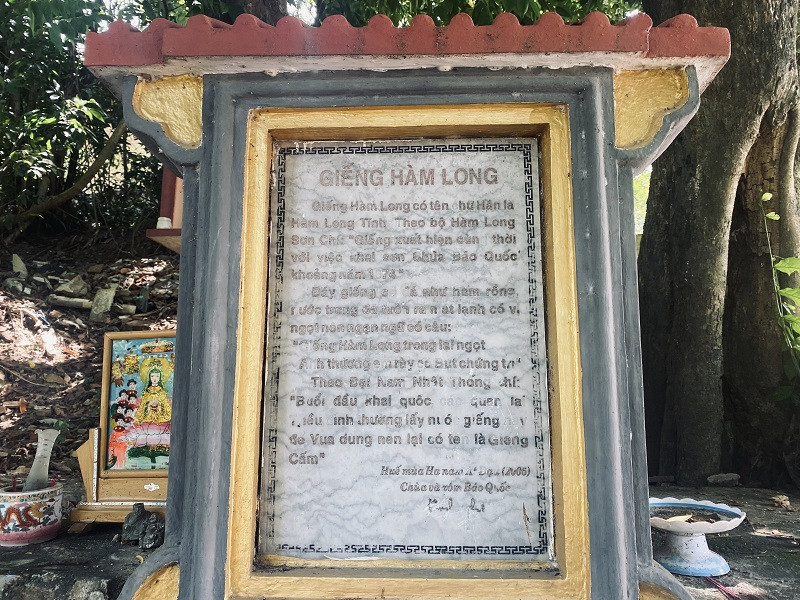 GIẾNG HÀM LONG
Giếng Hàm Long có tên chữ Hán là
Hàm Long Tỉnh Theo bộ Hàm Long
Sơn Chí: "Giếng xuất hiện cùng thời
với việc khai sơn Chùa Báo Quốc
khoảng năm
Đáy giếng có đá như hàm rồng,
nước trong
ngọt non ngạn ngữ có câu:
"Giếng Hàm Long trong lại ngọt
Anh thương em rày có Bụt chứng tri"
Theo Đại Nam Nhất Thống Chí:
"Buổi đầu khai quốc các quan lại
Triều Đình thường lấy nước giếng này
để Vua dùng nên lại có tên là Giếng
Cấm"
Huế mùa Hạ năm (2006)
Chùa và xóm Báo Quốc